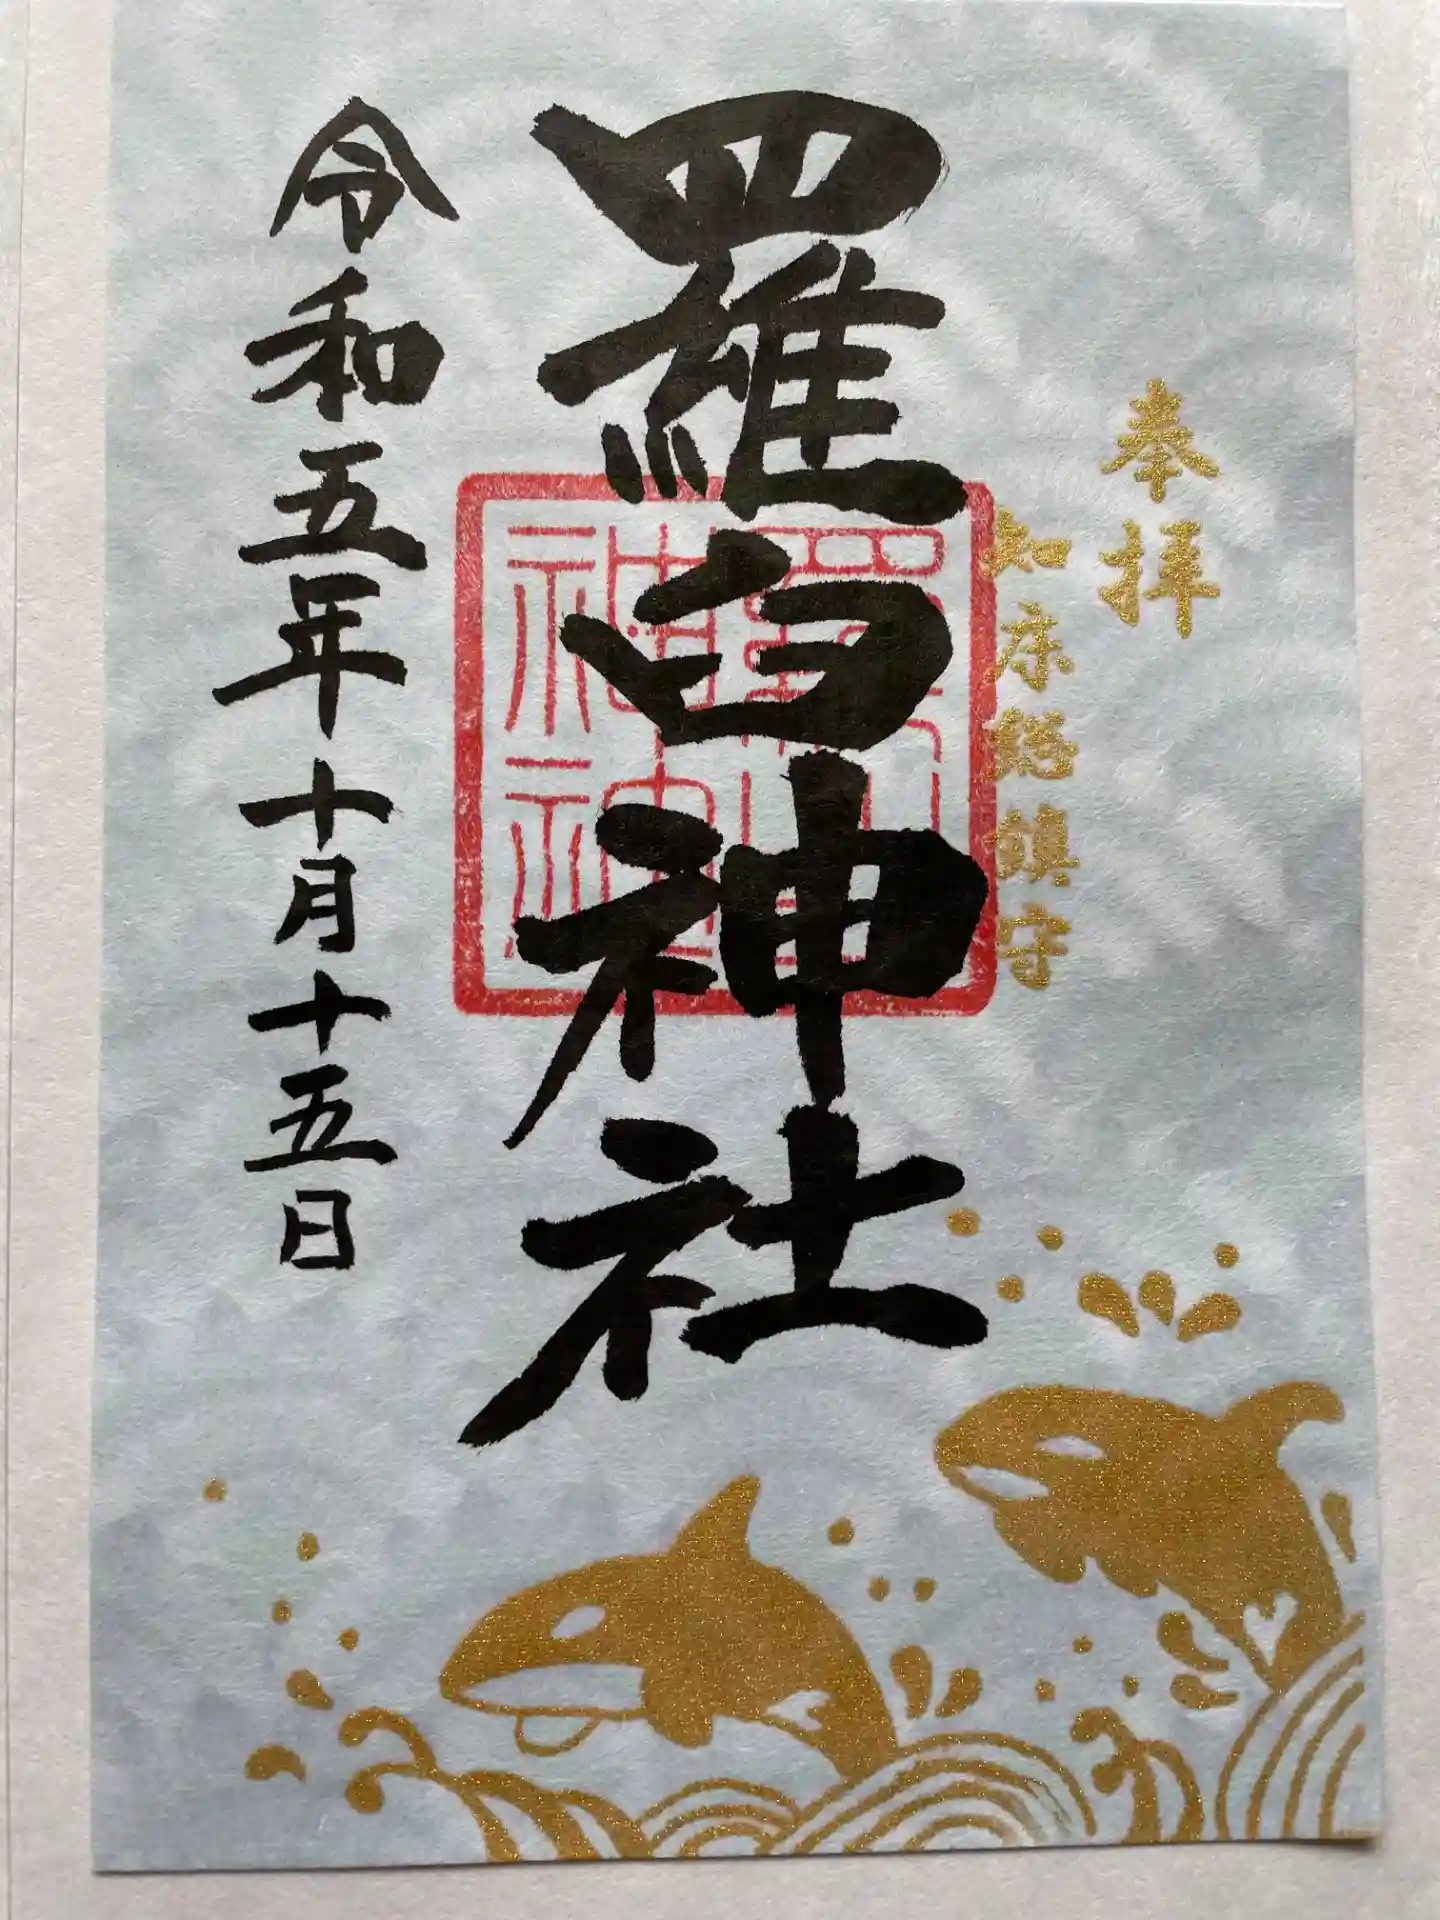 奉拝
知床総鎮守
羅臼神社
羅臼神社
令和五年十月十五日